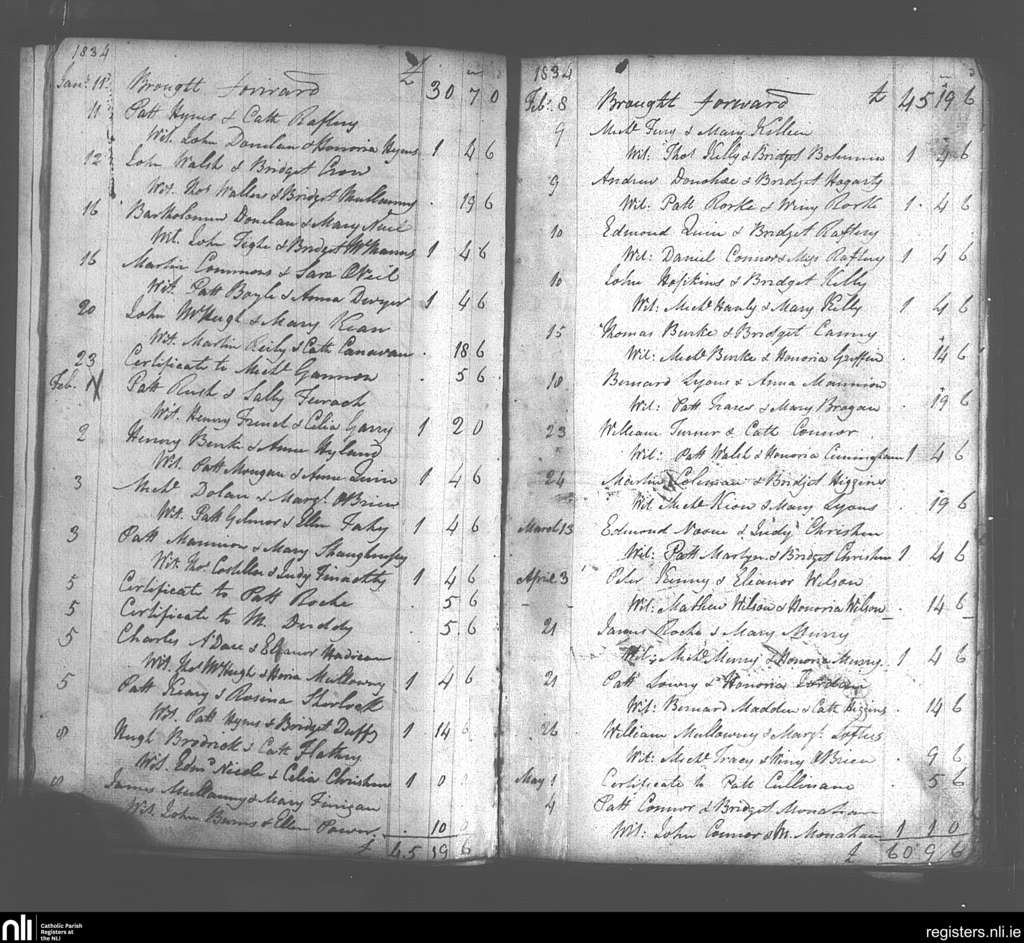 1834
Jany. 11 Brought forward £ 30 7 0
11 Patt Hynes & Cath Raftery
Wit. John Donelan & Honoria Hynes 1 4 6
12 John Walsh & Bridget Crow
Wit. Thos Wallers & Bridget Mullowney . 19 6
16 Bartholomew Donelan & Mary Neil
Wit. John Tighe & Bridget McManus 1 4 6
16 Martin Commons & Sara O'Neil
Wit. Patt Boyle & Anna Dwyer 1 4 6
20 John McHugh & Mary Kean
Wit. Martin Reily & Cath Canavan . 18 6
23 Certificate to Michl Gannon . 5 6
Feb. Patt Rush & Sally
Wit. Henry & Celia Garry 1 2 0
2 Henry Burke & Anne Hyland
Wit. Patt Mongan & Anne Quin 1 4 6
3 Michl Dolan & Margt O'Brien
Wit. Patt Gilmor & Ellen Fahy 1 4 6
3 Patt Mannion & Mary Shaughnessy
Wit. Thos Costelloe & Judy Finnerthy 1 4 6
5 Certificate to Patt Roche . 5 6
5 Certificate to M. Duddy . 5 6
5 Charles & Eleanor Madican
Wit. Thos McHugh & Mullowny 1 4 6
5 Patt Keary & Rosina Sherlock
Wit. Patt Hynes & Bridget Duffy 1 14 6
8 Hugh Brodrick & Cath Flathry
Wit. Edmd Nicole & Celia Christun 1 0 0
8 James Mullowny & Mary Finigan
Wit. John Burns & Ellen Power . 10 0
£ 45 19 6
1834
Feb. 8 Brought forward £ 45 19 6
9 Michl Fury & Mary Killeen
Wit: Thos Kelly & Bridget Bohunnin 1 4 6
9 Andrew Donohoe & Bridget Hagarty
Wit: Patt Rorke & Winy Rorke 1 4 6
10 Edmond Quin & Bridget Raftery
Wit: Daniel Connor & Raftery 1 4 6
10 John Hopkins & Bridget Kelly
Wit: Michl Hanly & Mary Kelly 1 4 6
15 Thomas Burke & Bridget Canny
Wit: Michl Burke & Honoria Griffin . 14 6
10 Bernard Lyons & Anna Mannion
Wit: Patt & Mary Brogan . 19 6
23 William Turner & Cath Connor
Wit: Patt Walsh & Honoria Cuningham 1 4 6
24 Martin Coleman & Bridget Higgins
Wit Michl Kion & Mary Lyons . 19 6
March 13 Edmond Noone & Judy Christun
Wit: Patt Martyn & Bridget Christun 1 4 6
April 3 Peter Kenny & Eleanor Wilson
Wit: Mathew Wilson & Honoria Wilson . 14 6
21 James Roche & Mary Murry
Wit: Michl Murry & Honoria Murry 1 4 6
21 Patt Lowry & Honoria Jordan
Wit: Bernard Madden & Cath Higgins . 14 6
26 William Mullowny & Margt Loftus
Wit: Michl Tracy & Winy O'Brien . 9 6
May 1 Certificate to Patt Cullinane . 5 6
4 Patt Connor & Bridget Monahan
Wit: John Connor & M. Monahan 1 1 0
£ 60 9 6
nli Catholic Parish
Registers at
the NLI
registers.nli.ie